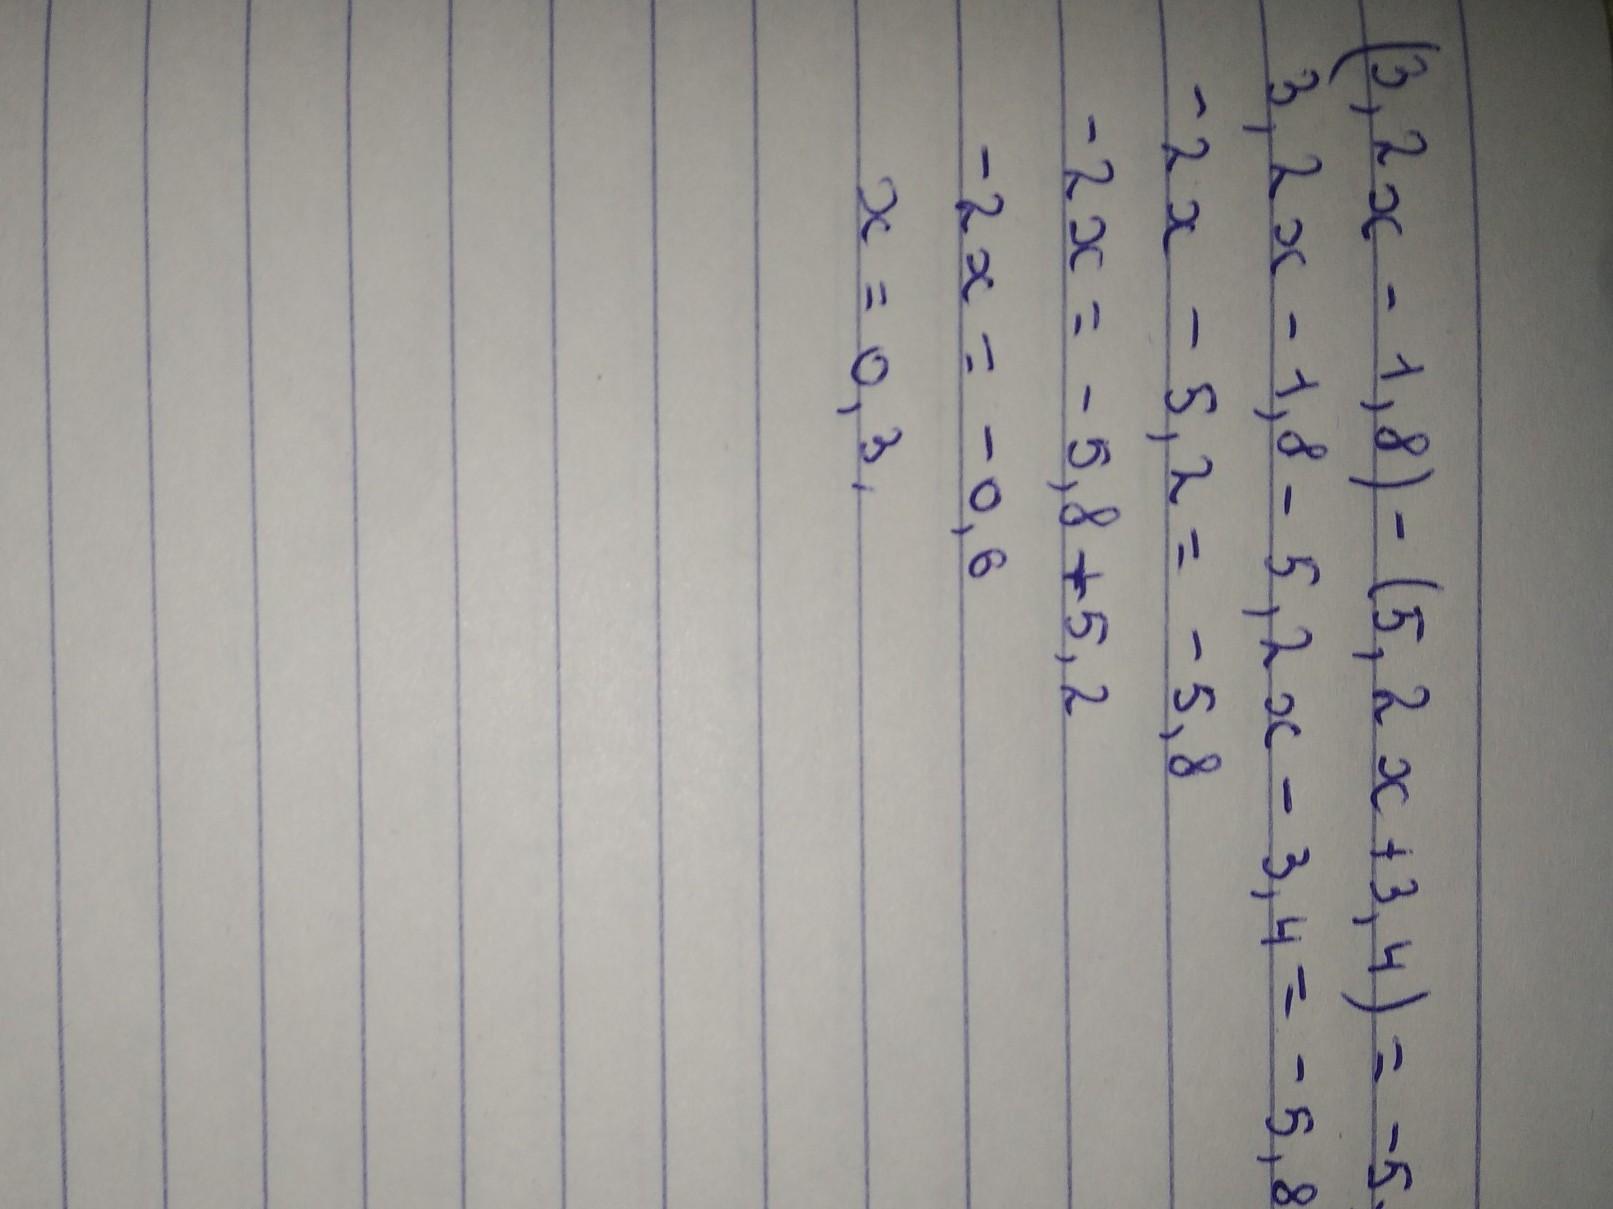 (3,2x - 1,8) - (5,2x + 3,4) = -5,
3,2x - 1,8 - 5,2x - 3,4 = -5,8
-2x - 5,2 = -5,8
-2x = -5,8 + 5,2
-2x = -0,6
x = 0,3,